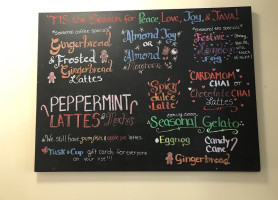 'TIS the Season for Peace, Love, Joy, & JAVA!
Gingerbread
& Frosted
Gingerbread
Lattes
Almond Joy
OR
Almond
Festive
Spicy
dulce
Latte
CARDAMOM
CHAI
or
Chocolate CHAI
Lattes
PEPPERMINT
LATTES & Mochas
We still have pumpkin & apple pie lattes
Tusk & Cup gift cards for everyone
on your list!!!
coming soon
Seasonal Gelato
Eggnog
Candy
Cane
Gingerbread